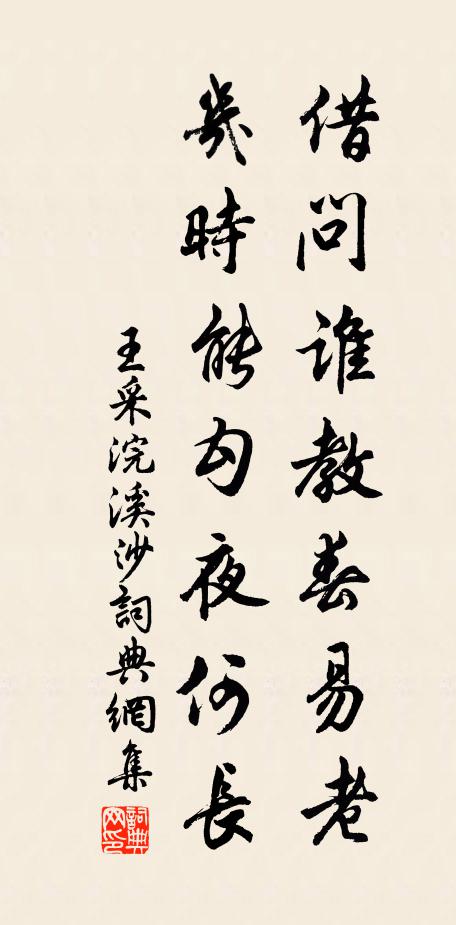 借問誰教春易老
幾時能勾夜何長
王采浣溪沙詞典網集
詞典网印